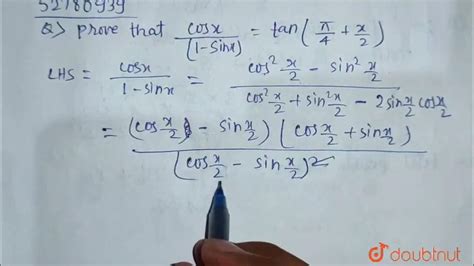 52780939
Q> prove that cosx/(1-sinx) = tan(π/4 + x/2)
LHS = cosx/1-sinx = cos² x/2 - sin² x/2 / cos² x/2 + sin² x/2 - 2sin x/2 cos x/2
= (cos x/2 - sin x/2) (cos x/2 + sin x/2) / (cos x/2 - sin x/2)²
doubtnut